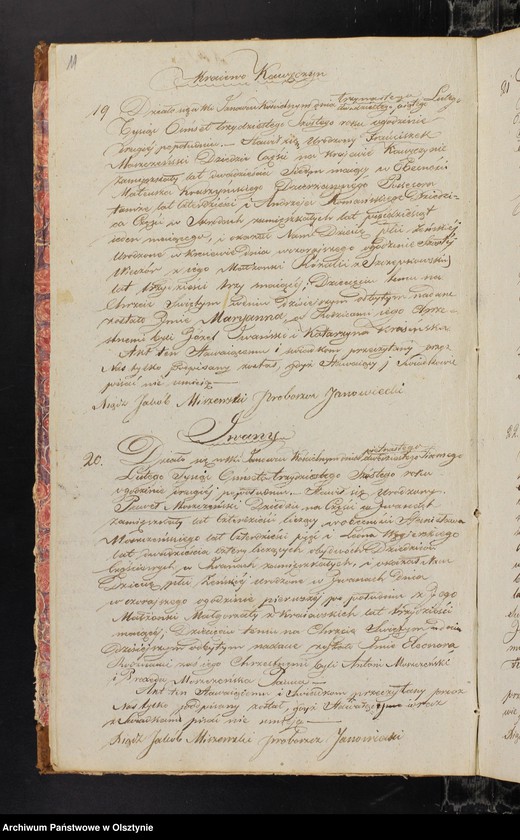 11
Mroczewo Kawęczyn
19 Działo się w wsi Janowiu Kościelnym dnia trzynastego Lutego
Tysiąc Osmset trzydziestego Szóstego roku o godzinie
drugiej popołudniu. Stawił się Urodzony Franciszek
Dziedzic Części na Krajewie Kawęczynie
zamieszkały lat dwadzieścia Siedym maiący w Obecności
Mateusza
lat czterdzieści i Andrzeia Romańskiego Dziedzi-
ca Części w zamieszkałych lat pięćdziesiąt
ieden maiącego, i okazał Nam Dziecię płci żeńskiej
Urodzone w dnia wczorayszego o godzinie Szóstej
Wieczór z iego Małżonki Rozalii z Szczepkowskich
lat trzydzieści trzy maiącej; Dziecięciu temu na
Chrzcie Świętym w dniu dzisieyszym odbytym nadane
zostało Imie Maryanna, a Rodzicami iego Chrze-
stnemi byli Józef Iwański i Katarzyna
Akt ten Stawaiącemu i świadkom przeczytany przez
Nas tylko podpisany został, gdyż Stawaiący i Świadkowie
pisać nie umieią
Xiądz Jakob Mirzewski Proboszcz Janowiecki
Iwany
20. Działo się w wsi Janowiu Kościelnym dnia piętnastego
Lutego Tysiąc Osmset trzydziestego Szóstego roku
o godzinie drugiej popołudniu. Stawił się Urodzony
Paweł Dziedzic na Części w Iwanach
zamieszkały lat czterdzieści liczący w obecności
lat czterdzieści pięć i Leona
lat dwadzieścia cztery liczących obydwóch Dziedziców
częściowych w Iwanach zamieszkałych, i okazał Nam
Dziecię płci żeńskiej urodzone w Iwanach dnia
wczorayszego o godzinie pierwszej po południu z Jego
Małżonki Małgorzaty z lat trzydzieści
maiącej; Dziecięciu temu na Chrzcie Świętym w dniu
Dzisieyszym odbytym nadane zostało Imie Eleonora
Rodzicami zaś iego Chrzestnymi byli Antoni
i
Akt ten Stawaiącemu i Świadkom przeczytany przez
Nas tylko podpisany został, gdyż Stawaiący wraz
z Świadkami pisać nie umieią
Xiądz Jakob Mirzewski proboszcz Janowiecki
81
82.
Archiwum Państwowe w Olsztynie